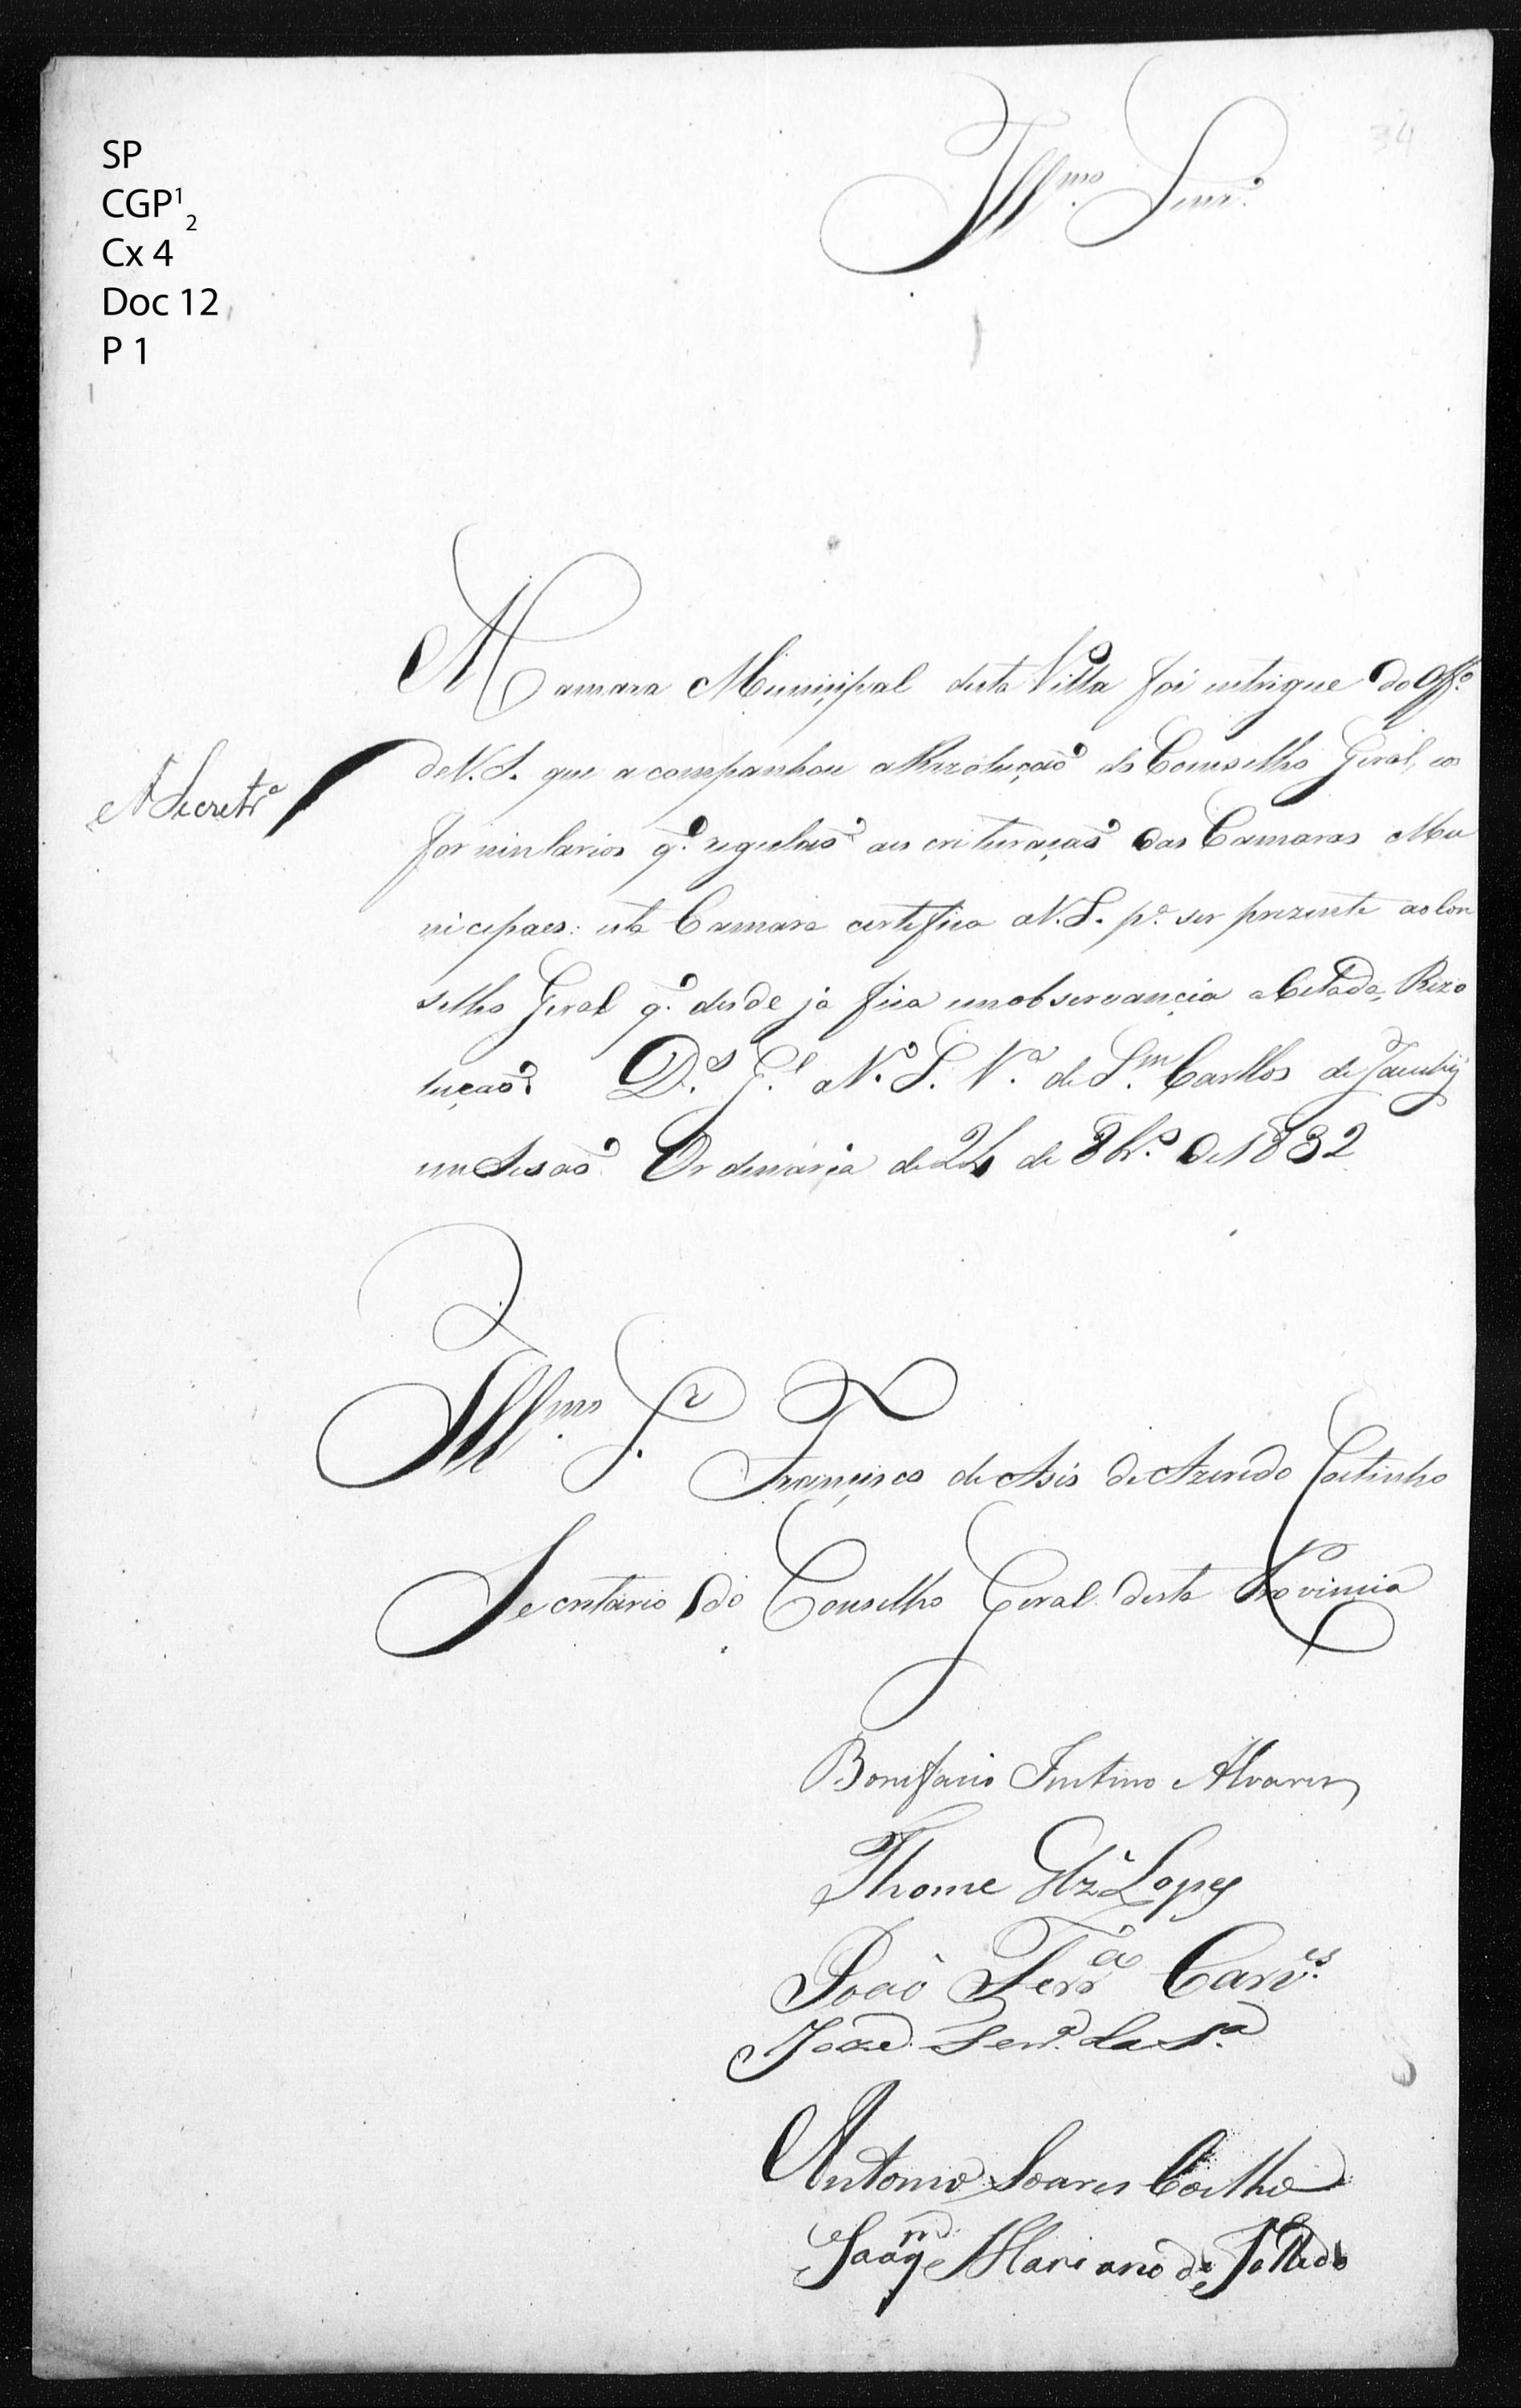 SP
CGP¹₂
Cx 4
Doc 12
P 1
34
Ill.mo Senr.
A Camara Municipal desta Villa foi intrigue do Off.o
de V. S. que acompanhou a Rezoluçaõ do Conselho Geral, eos
A Secretr.a
formularios q.e regulaõ aescrituraçaõ das Camaras Mu
nicipaes: esta Camara certifica aV. S. p.a ser prezente aoCon
selho Geral q.e desde já fica emobservancia aCitada Rezo
luçaõ. D.s G.e a V. S. V.a de S.m Carllos de Jacuhÿ
em Sesaõ Ordinaria de 24 de 8br.o de 1832
Ill.mo S.r Francisco de Asis de Azeredo Coitinho
Secretario do Conselho Geral desta Provincia
Bonifacio Alvares
Thome Glz Lopes
Joaõ Ferr.a Carv.es
Joze Ferr.a da S.a
Antonio Soares Coelho
Joaq.m Mariano de Tolledo